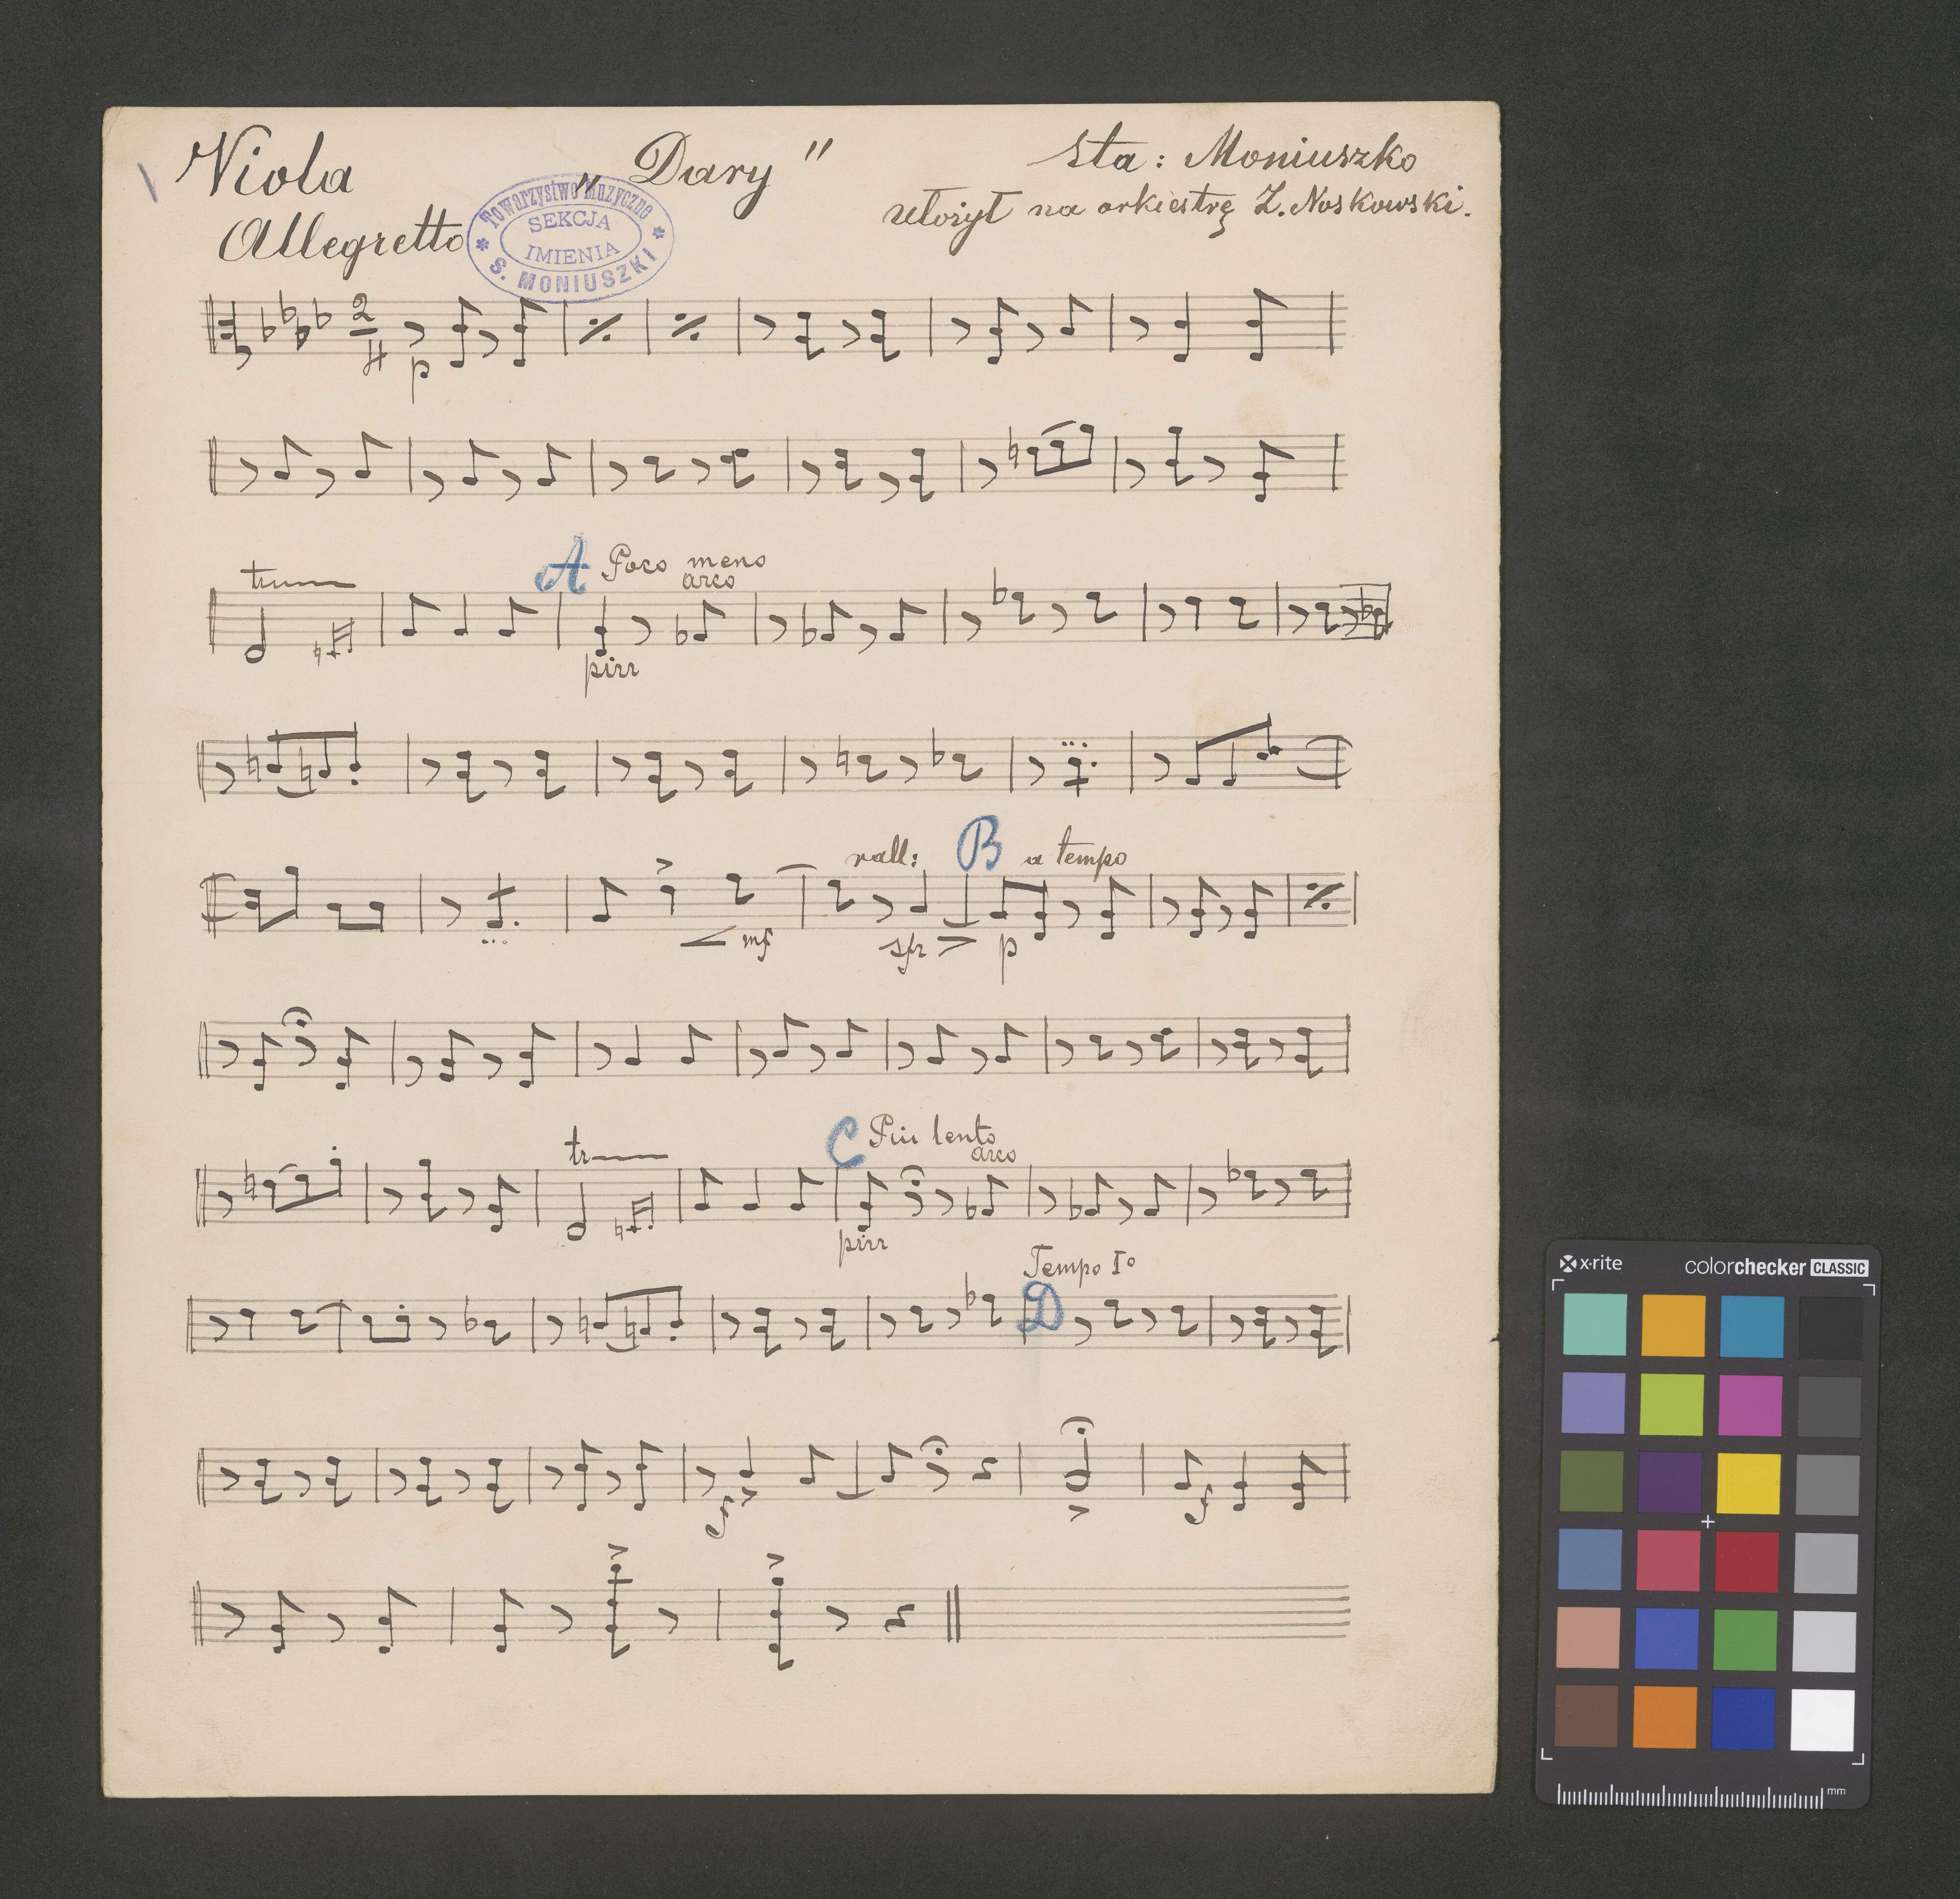 Viola „Dary" Sta: Moniuszko
ułożył na orkiestrę Z. Noskowski.
Allegretto
Towarzystwo Muzyczne
SEKCJA
IMIENIA
S. MONIUSZKI
2
4
p
A Poco meno
arco
pizz
rall: B a tempo
mf sfz p
C Piu lento
tr arco
pizz
Tempo I°
D
f f
x-rite colorchecker CLASSIC
mm